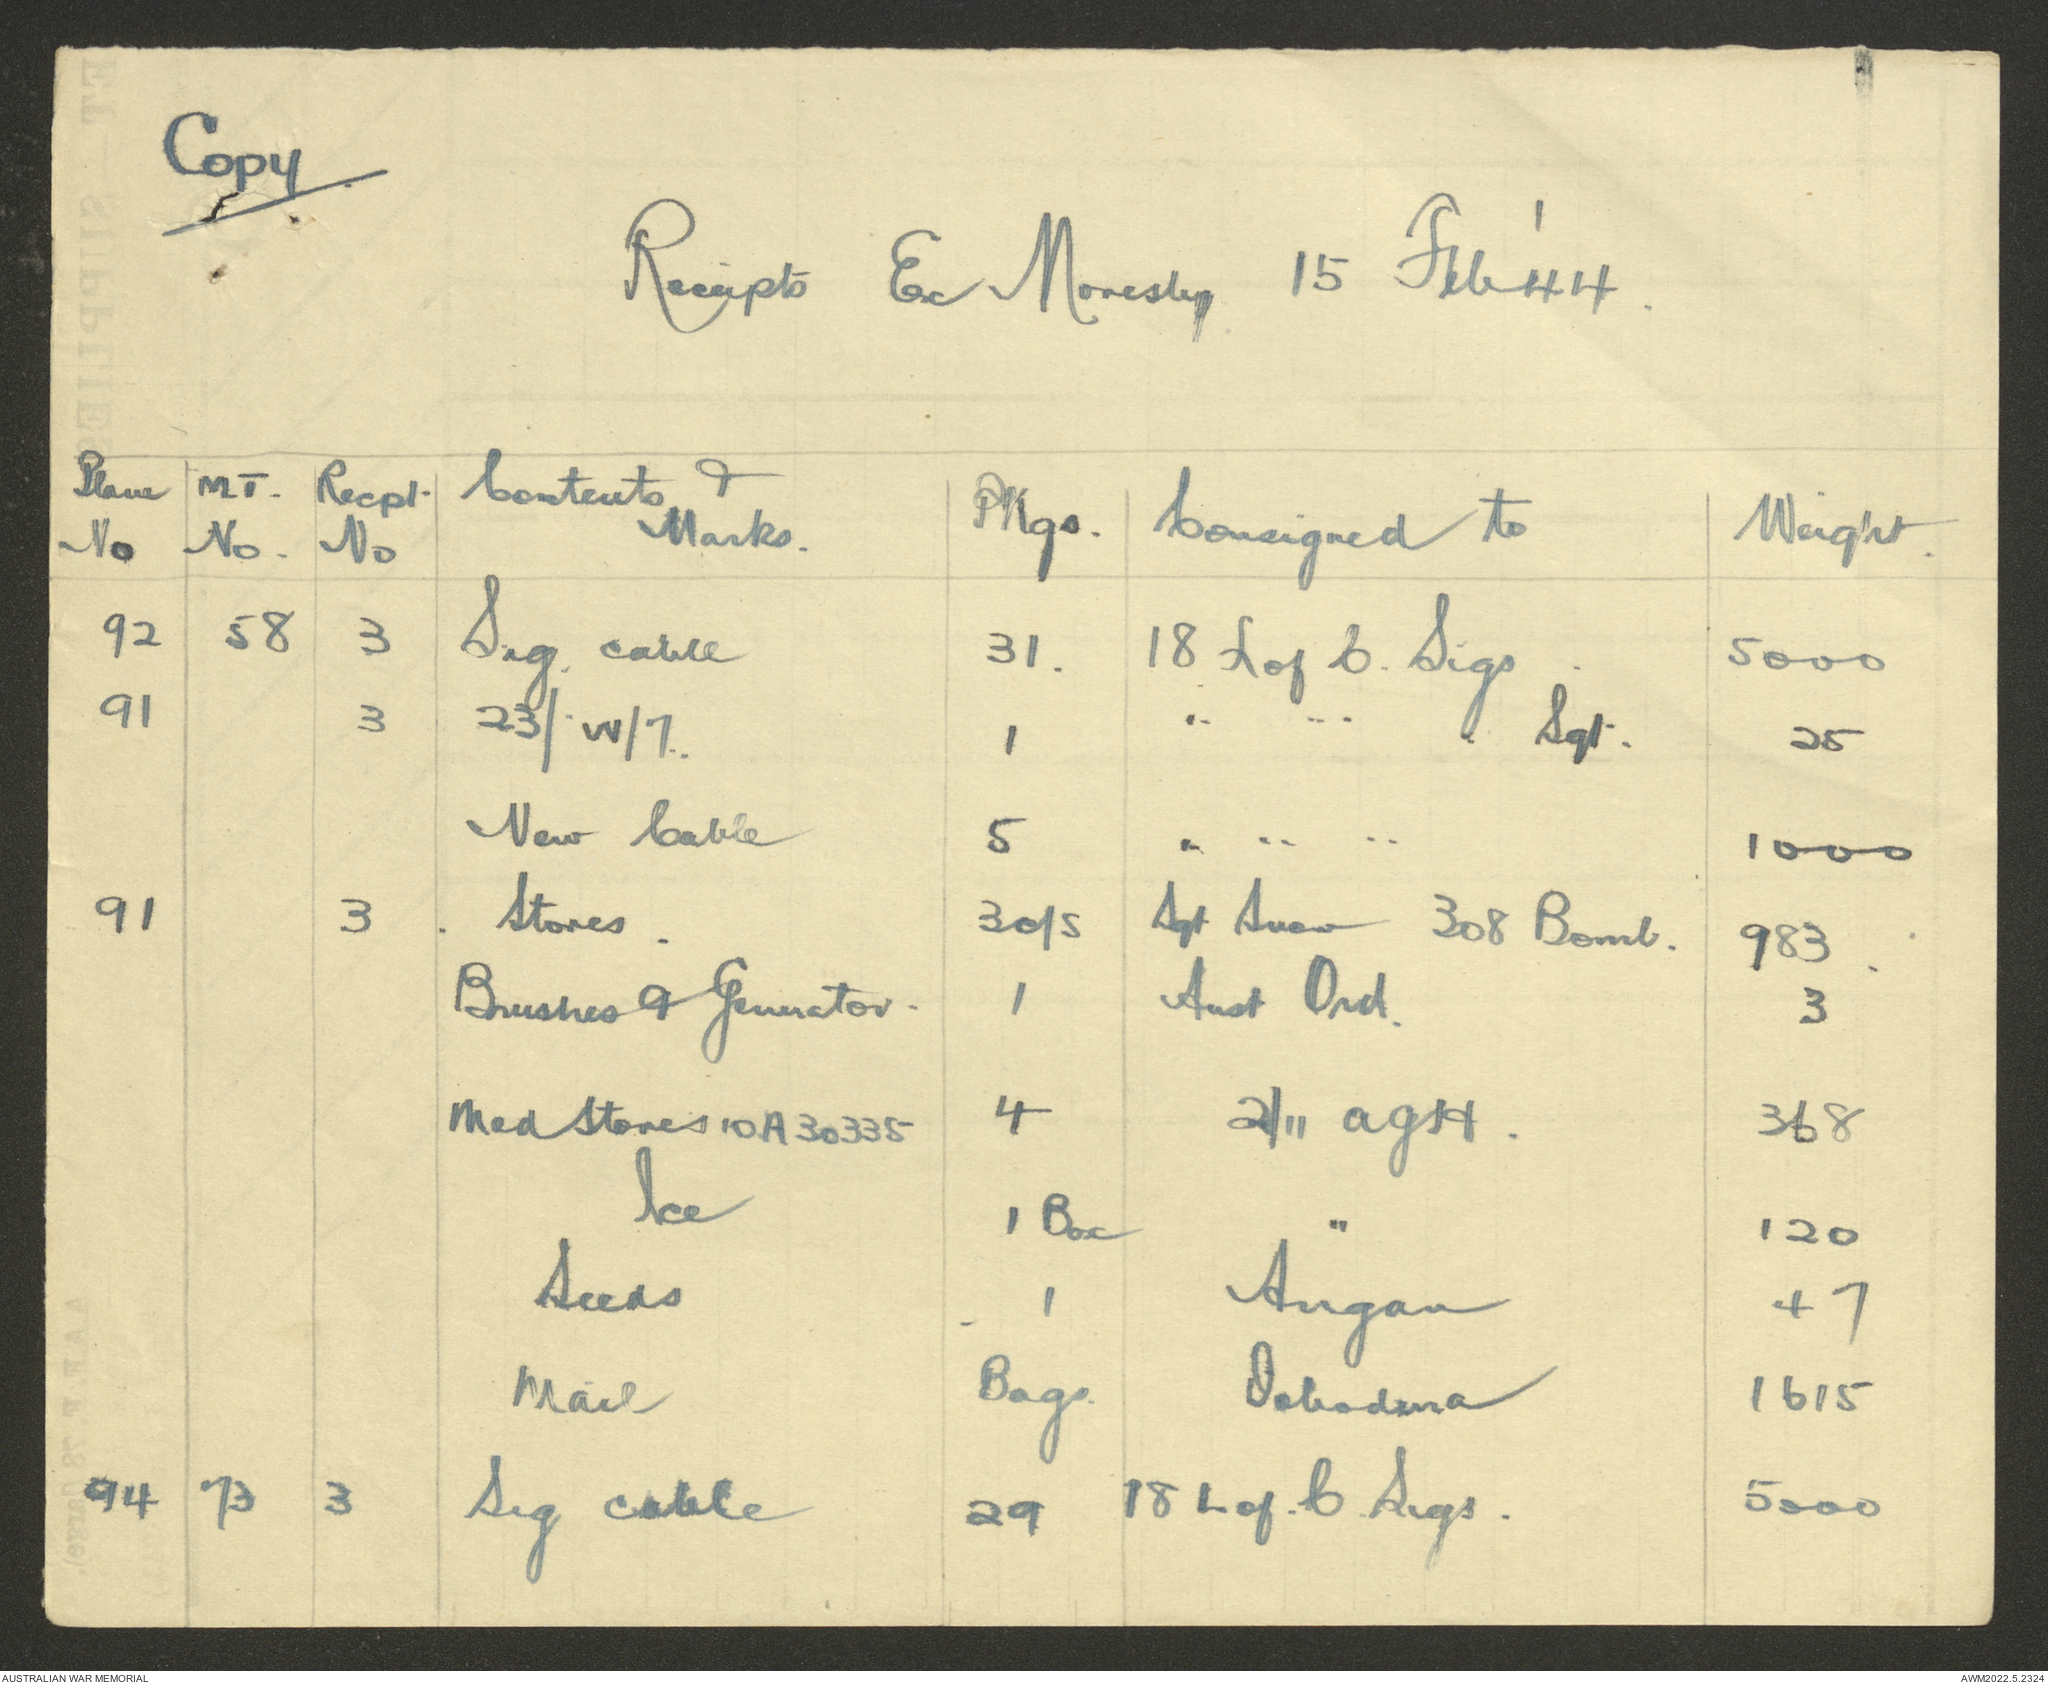 Copy
Receipts Ex Moresby 15 Feb '44.
Plane No | M.T. No. | Recpt. No | Contents & Marks. | Pkgs. | Consigned to | Weight.
92 | 58 | 3 | Sig. cable | 31. | 18 L of C. Sigs | 5000
91 | | 3 | 23/ W/7. | 1 | " " " Sgt. | 25
New Cable | 5 | " " " | 1000
91 | | 3 | Stores. | 30/5 | Sgt Snow 308 Bomb. | 983
Brushes & Generator. | 1 | Aust Ord. | 3
Med Stores 10A30335 | 4 | 2/11 AGH. | 368
Ice | 1 Box | " | 120
Seeds | 1 | Angau | 47
Mail | Bags. | Dobodura | 1615
94 | 73 | 3 | Sig cable | 29 | 18 L of. C. Sigs. | 5000
AUSTRALIAN WAR MEMORIAL
AWM2022.5.2324